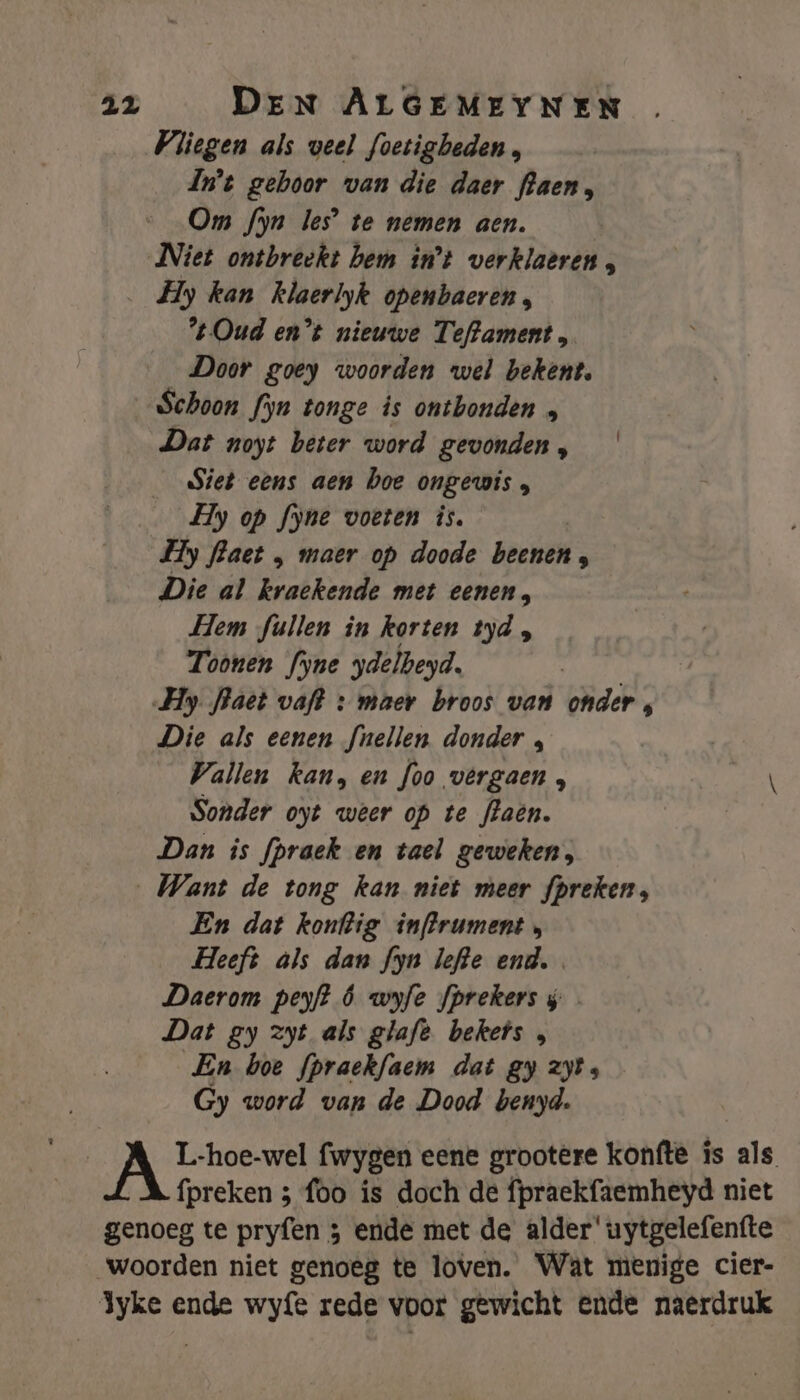 22 DEN ALGEMEYNEN .
Vliegen als veel ſoetigheden,
In't gehoor van die daer ſtaen,
Om ſyn les' te nemen aen.
Niet ontbreekt hem in't verklaeren,
Hy kan klaerlyk openbaeren,
't Oud en't nieuwe Teſtament,
Door goey woorden wel bekent.
Schoon ſyn tonge is ontbonden,
Dat noyt beter word gevonden,
Siet eens aen hoe ongewis,
Hy op ſyne voeten is.
Hy ſtaet, maer op doode beenen,
Die al kraekende met eenen,
Hem ſullen in korten tyd,
Toonen ſyne ydelheyd.
Hy ſtaet vaſt : maer broos van onder,
Die als eenen ſnellen donder,
Vallen kan, en ſoo vergaen,
Sonder oyt weer op te ſtaen.
Dan is ſpraek en tael geweken,
Want de tong kan niet meer ſpreken,
En dat konſtig inſtrument,
Heeft als dan ſyn leſte end.
Daerom peyſt ô wyſe ſprekers;
Dat gy zyt als glaſe bekers,
En hoe ſpraekſaem dat gy zyt,
Gy word van de Dood benyd.
AL-hoe-wel ſwygen eene grootere konſte is als
ſpreken ; ſoo is doch de ſpraekſaemheyd niet
genoeg te pryſen ; ende met de alder'uytgeleſenſte
woorden niet genoeg te loven. Wat menige cier-
lyke ende wyſe rede voor gewicht ende naerdruk